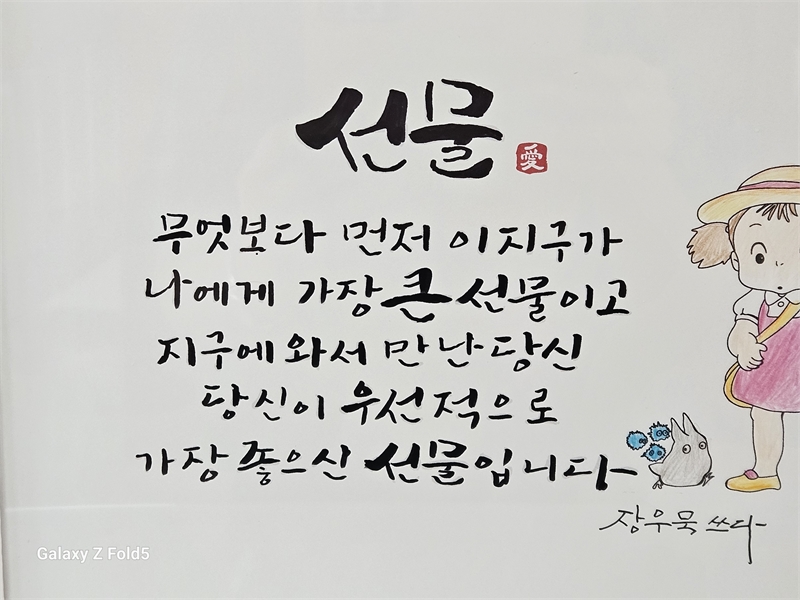 선물
愛
무엇보다 먼저 이 지구가
나에게 가장 큰 선물이고
지구에 와서 만난 당신
당신이 우선적으로
가장 좋으신 선물입니다
장우묵 쓰다
Galaxy Z Fold5